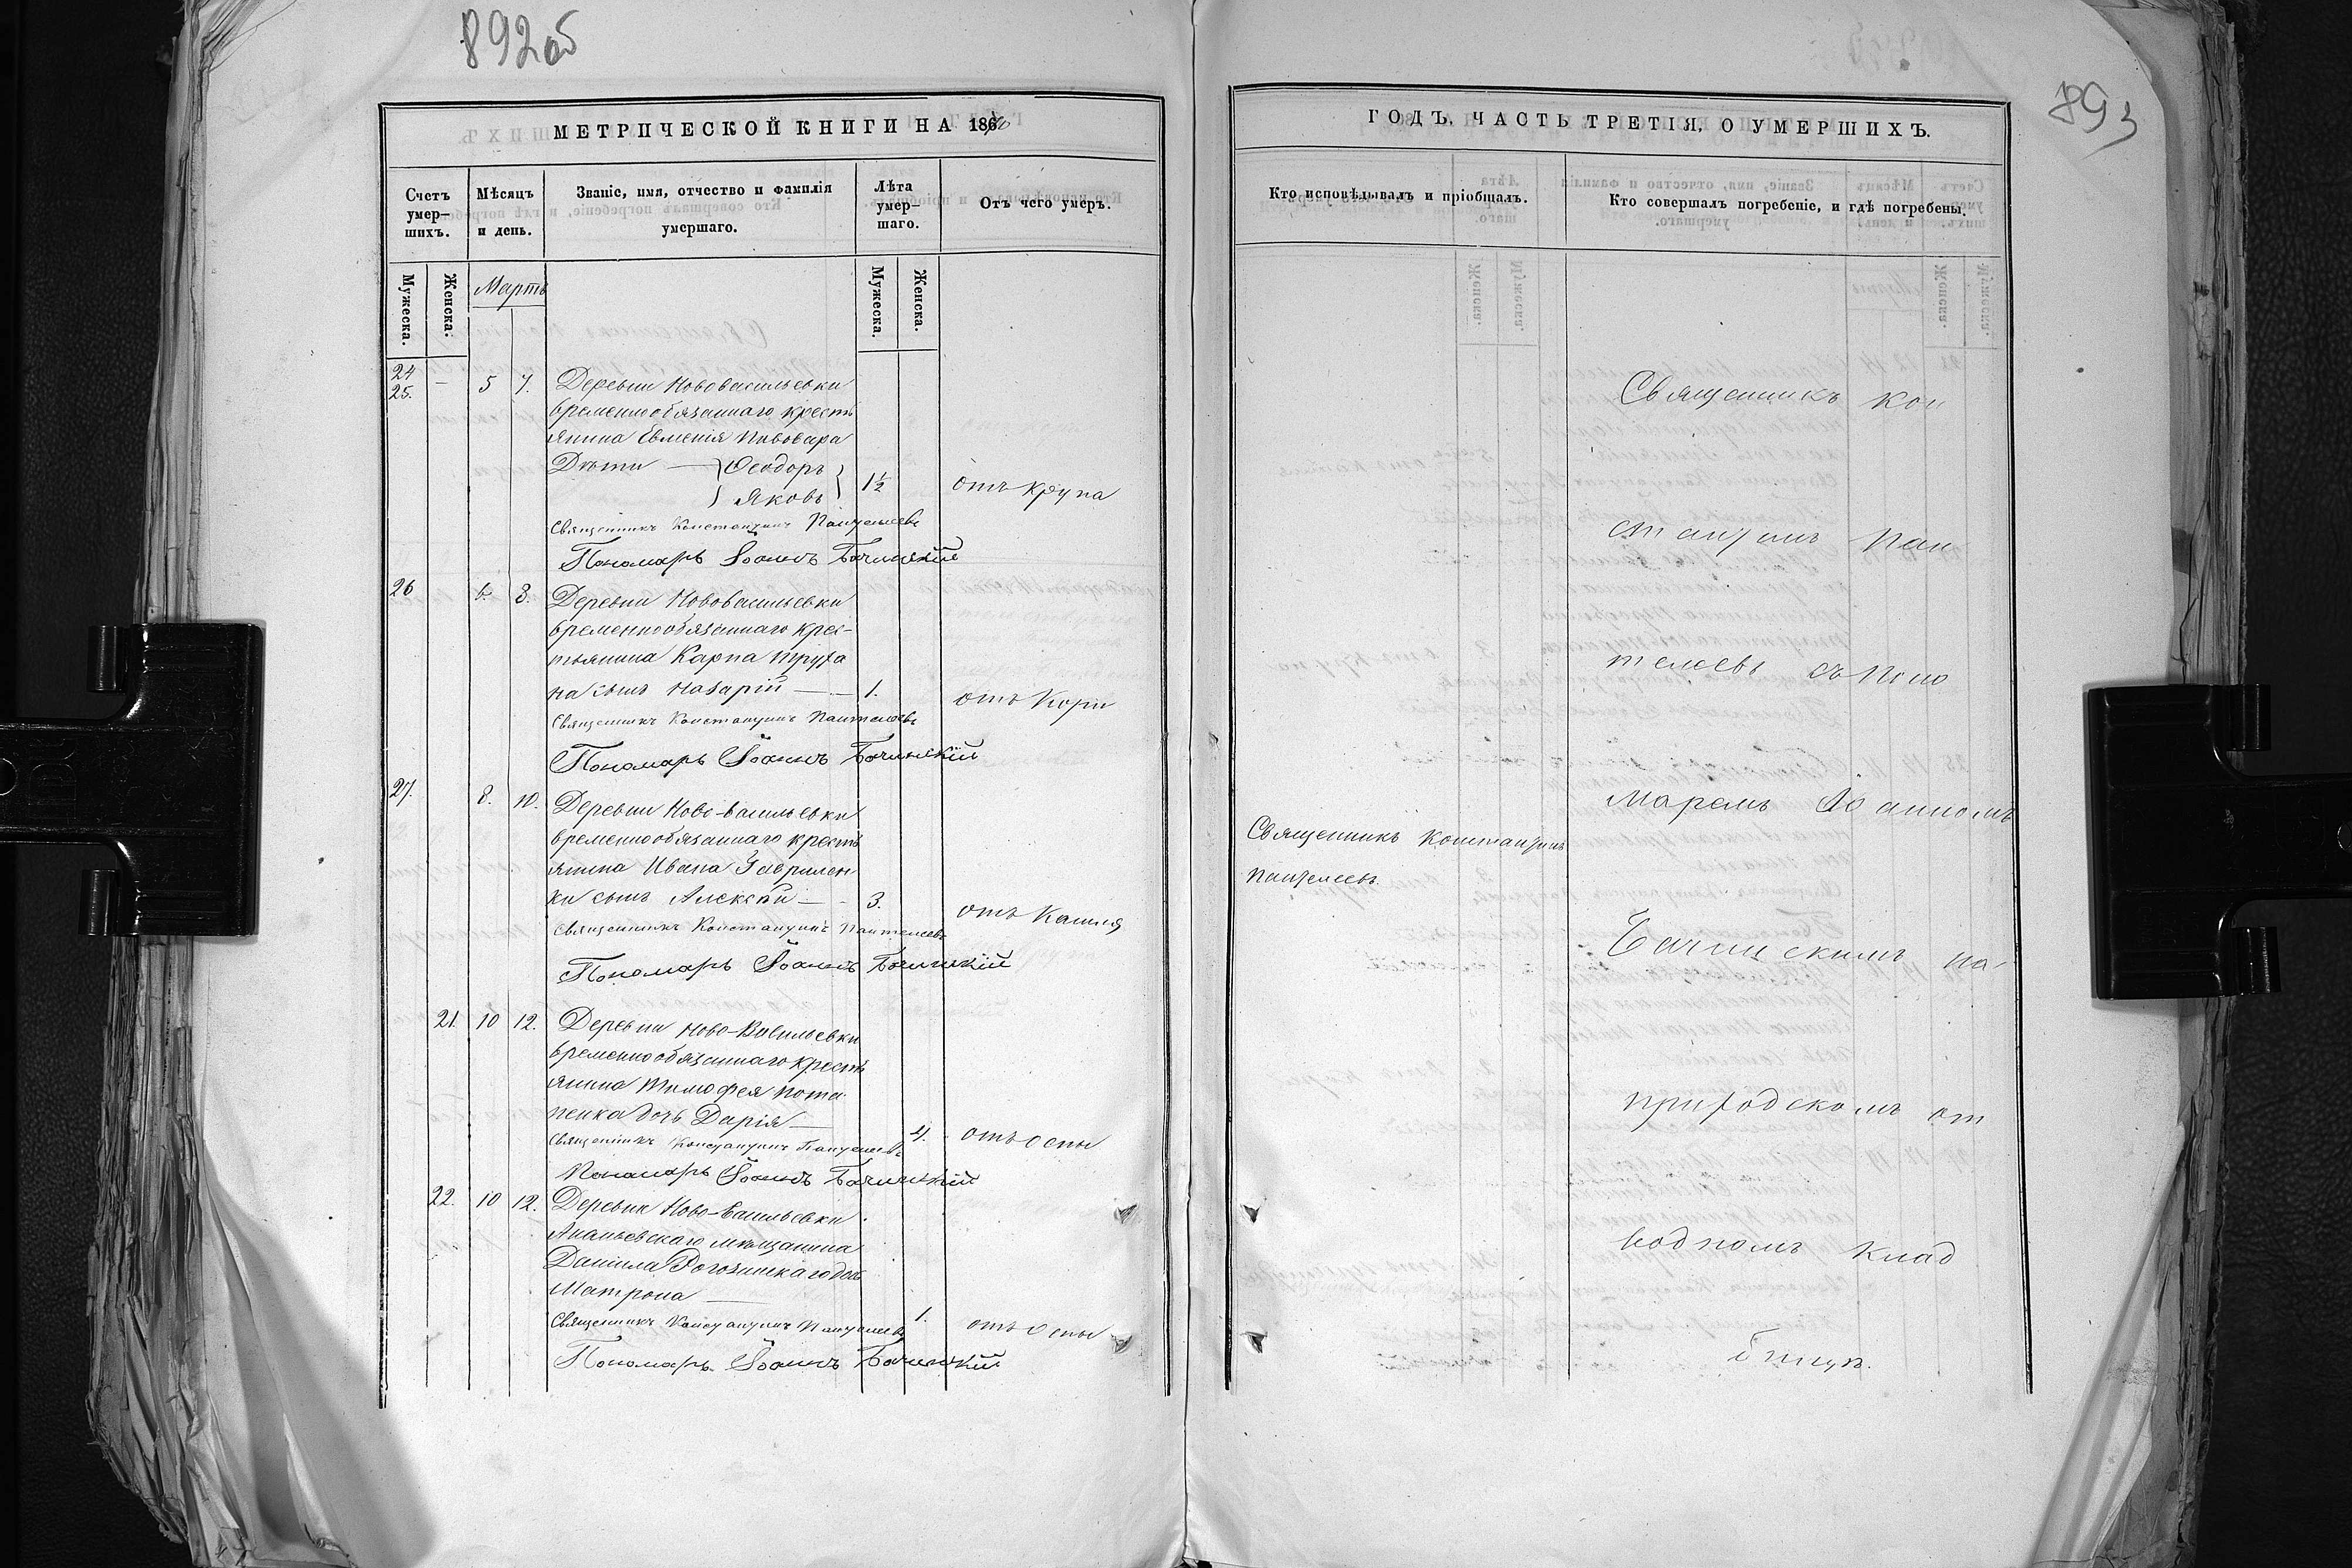 892об
МЕТРИЧЕСКОЙ КНИГИ НА 186
Счетъ умер-шихъ.
Мѣсяцъ и день.
Званіе, имя, отчество и фамилія умершаго.
Лѣта умер-шаго.
Отъ чего умеръ.
Мужеска.
Женска.
Мартъ
Мужеска.
Женска.
24
25. — 5 7. Деревни Нововасильевки
временнообязаннаго кресть
янина Евменія Пивовара
Дѣти — Ѳеодоръ
Яковъ 1½ отъ крупа
Священникъ Константинъ Пантелеевъ
Пономарь Іоаннъ Бачинскій
26 6. 8. Деревни Нововасильевки
временнообязаннаго крес-
тьянина Карпа Труха
на сынъ Назарій — 1. отъ Кори
Священникъ Константинъ Пантелеевъ
Пономарь Іоаннъ Бачинскій
27. 8. 10. Деревни Ново-васильевки
временнообязаннаго кресть
янина Ивана Гаврилен
ки сынъ Алексѣй — 3. отъ Кашля
Священникъ Константинъ Пантелеевъ
Пономарь Іоаннъ Бачинскій
21. 10 12. Деревни Ново-Васильевки
временнообязаннаго кресть
янина Тимофея Пота
пенка дочь Дарія — 4. отъ Оспы
Священникъ Константинъ Пантелеевъ
Пономарь Іоаннъ Бачинскій
22. 10 12. Деревни Ново-Васильевки
Ананьевскаго мѣщанина
Даніила Рогозинскаго дочь
Матрона — 1. отъ Оспы
Священникъ Константинъ Пантелеевъ
Пономарь Іоаннъ Бачинскій
893
ГОДЪ. ЧАСТЬ ТРЕТІЯ, О УМЕРШИХЪ.
Кто исповѣдывалъ и пріобщалъ.
Кто совершалъ погребеніе, и гдѣ погребены.
Священникъ Константинъ
Пантелеевъ.
Священникъ Кон
стантинъ Пан
телеевъ съ Поно
маремъ Іоанномъ
Бачинскимъ на
приходскомъ от
водномъ клад
бищѣ.